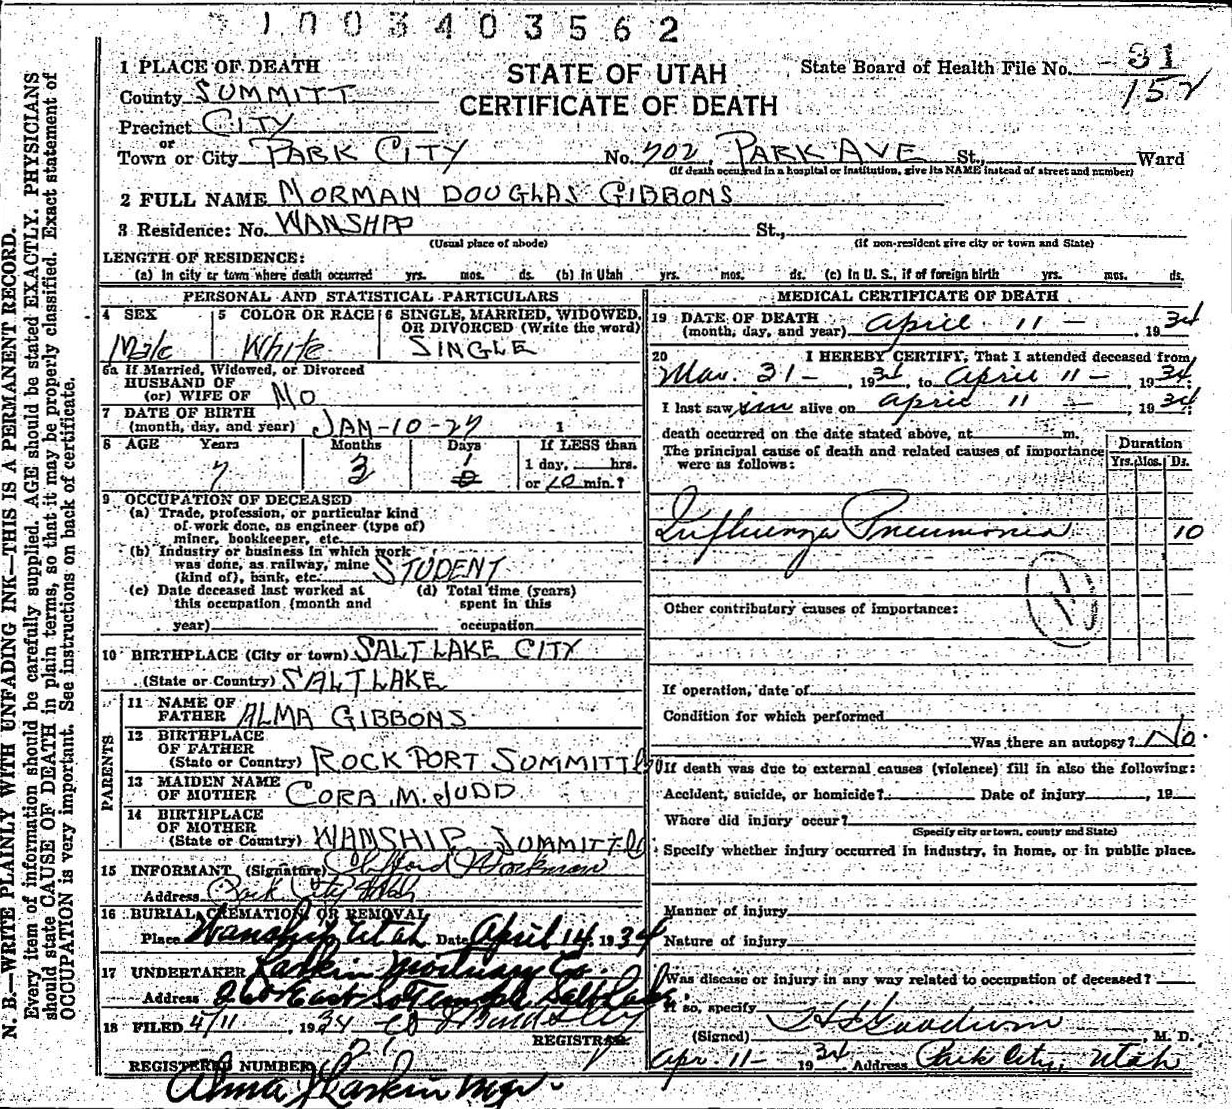 1003403562
1 PLACE OF DEATH
STATE OF UTAH
CERTIFICATE OF DEATH
State Board of Health File No. 31
152
County SUMMITT
Precinct CITY
or
Town or City PARK CITY No. 702, PARK AVE St., Ward
(If death occurred in a hospital or institution, give its NAME instead of street and number)
2 FULL NAME NORMAN DOUGLAS GIBBONS
3 Residence: No. WANSHIP St.,
(Usual place of abode) (If non-resident give city or town and State)
LENGTH OF RESIDENCE:
(a) In city or town where death occurred yrs. mos. ds. (b) In Utah yrs. mos. ds. (c) In U. S., if of foreign birth yrs. mos. ds.
PERSONAL AND STATISTICAL PARTICULARS
4 SEX
Male
5 COLOR OR RACE
White
6 SINGLE, MARRIED, WIDOWED,
OR DIVORCED (Write the word)
SINGLE
6a If Married, Widowed, or Divorced
HUSBAND OF
(or) WIFE OF NO
7 DATE OF BIRTH
(month, day, and year) JAN-10-27 1
8 AGE Years Months Days If LESS than
7 3 1 1 day, hrs.
or 10 min.?
9 OCCUPATION OF DECEASED
(a) Trade, profession, or particular kind
of work done, as engineer (type of)
miner, bookkeeper, etc.
(b) Industry or business in which work
was done, as railway, mine
(kind of), bank, etc. STUDENT
(c) Date deceased last worked at
this occupation (month and
year)
(d) Total time (years)
spent in this
occupation
10 BIRTHPLACE (City or town) SALT LAKE CITY
(State or Country) SALT LAKE
PARENTS
11 NAME OF
FATHER ALMA GIBBONS
12 BIRTHPLACE
OF FATHER
(State or Country) ROCKPORT SUMMITT Co
13 MAIDEN NAME
OF MOTHER CORA M. JUDD
14 BIRTHPLACE
OF MOTHER
(State or Country) WANSHIP SUMMITT Co
15 INFORMANT (Signature) Clifford Workman
Address Park City Utah
16 BURIAL, CREMATION OR REMOVAL
Place Wanship Utah Date April 14, 1934
17 UNDERTAKER Larkin Mortuary Co.
Address 260 East So Temple Salt Lake
18 FILED 4/11, 1934
REGISTRAR
REGISTERED NUMBER
Alma J Larkin Mgr.
MEDICAL CERTIFICATE OF DEATH
19 DATE OF DEATH
(month, day, and year) April 11 - , 1934
20 I HEREBY CERTIFY, That I attended deceased from
Mar. 31 - , 1934, to April 11 - , 1934;
I last saw him alive on April 11 - , 1934;
death occurred on the date stated above, at m.
The principal cause of death and related causes of importance
were as follows:
Duration
Yrs. Mos. Ds.
Influenza Pneumonia 10
11
Other contributory causes of importance:
If operation, date of
Condition for which performed
Was there an autopsy? No.
If death was due to external causes (violence) fill in also the following:
Accident, suicide, or homicide? Date of injury , 19
Where did injury occur?
(Specify city or town, county and State)
Specify whether injury occurred in industry, in home, or in public place.
Manner of injury
Nature of injury
Was disease or injury in any way related to occupation of deceased?
If so, specify
(Signed) Goodwin M. D.
Apr 11 - 1934 Address Park City, Utah
N. B.—WRITE PLAINLY WITH UNFADING INK—THIS IS A PERMANENT RECORD.
Every item of information should be carefully supplied. AGE should be stated EXACTLY. PHYSICIANS
should state CAUSE OF DEATH in plain terms, so that it may be properly classified. Exact statement of
OCCUPATION is very important. See instructions on back of certificate.